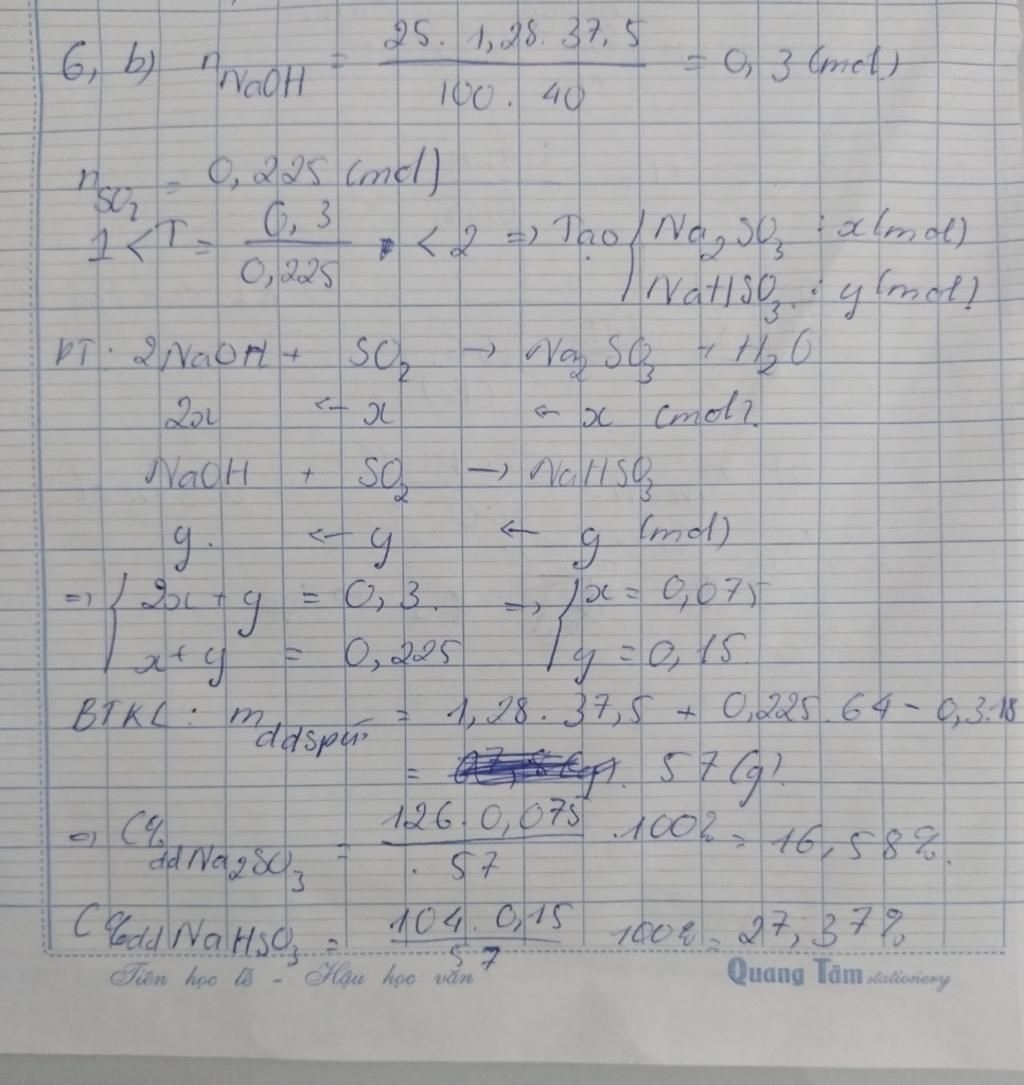 6, b) n NaOH = 25. 1,28. 37,5 / 100. 40 = 0,3 (mol)
n SO2 = 0,225 (mol)
1 < T = 0,3 / 0,225 < 2 => Tạo { Na2SO3 : x (mol)
NaHSO3 : y (mol)
PT: 2NaOH + SO2 → Na2SO3 + H2O
2x ← x ← x (mol)
NaOH + SO2 → NaHSO3
y. ← y ← y (mol)
=> { 2x + y = 0,3. => { x = 0,075
x + y = 0,225 y = 0,15
BTKL: m ddspứ = 1,28. 37,5 + 0,225. 64 - 0,3.18
= 57 (g)
=> C% dd Na2SO3 = 126. 0,075 / 57 .100% = 16,58%.
C% dd NaHSO3 = 104. 0,15 / 57 100% = 27,37%
Tiên học lễ - Hậu học văn Quang Tâm stationery